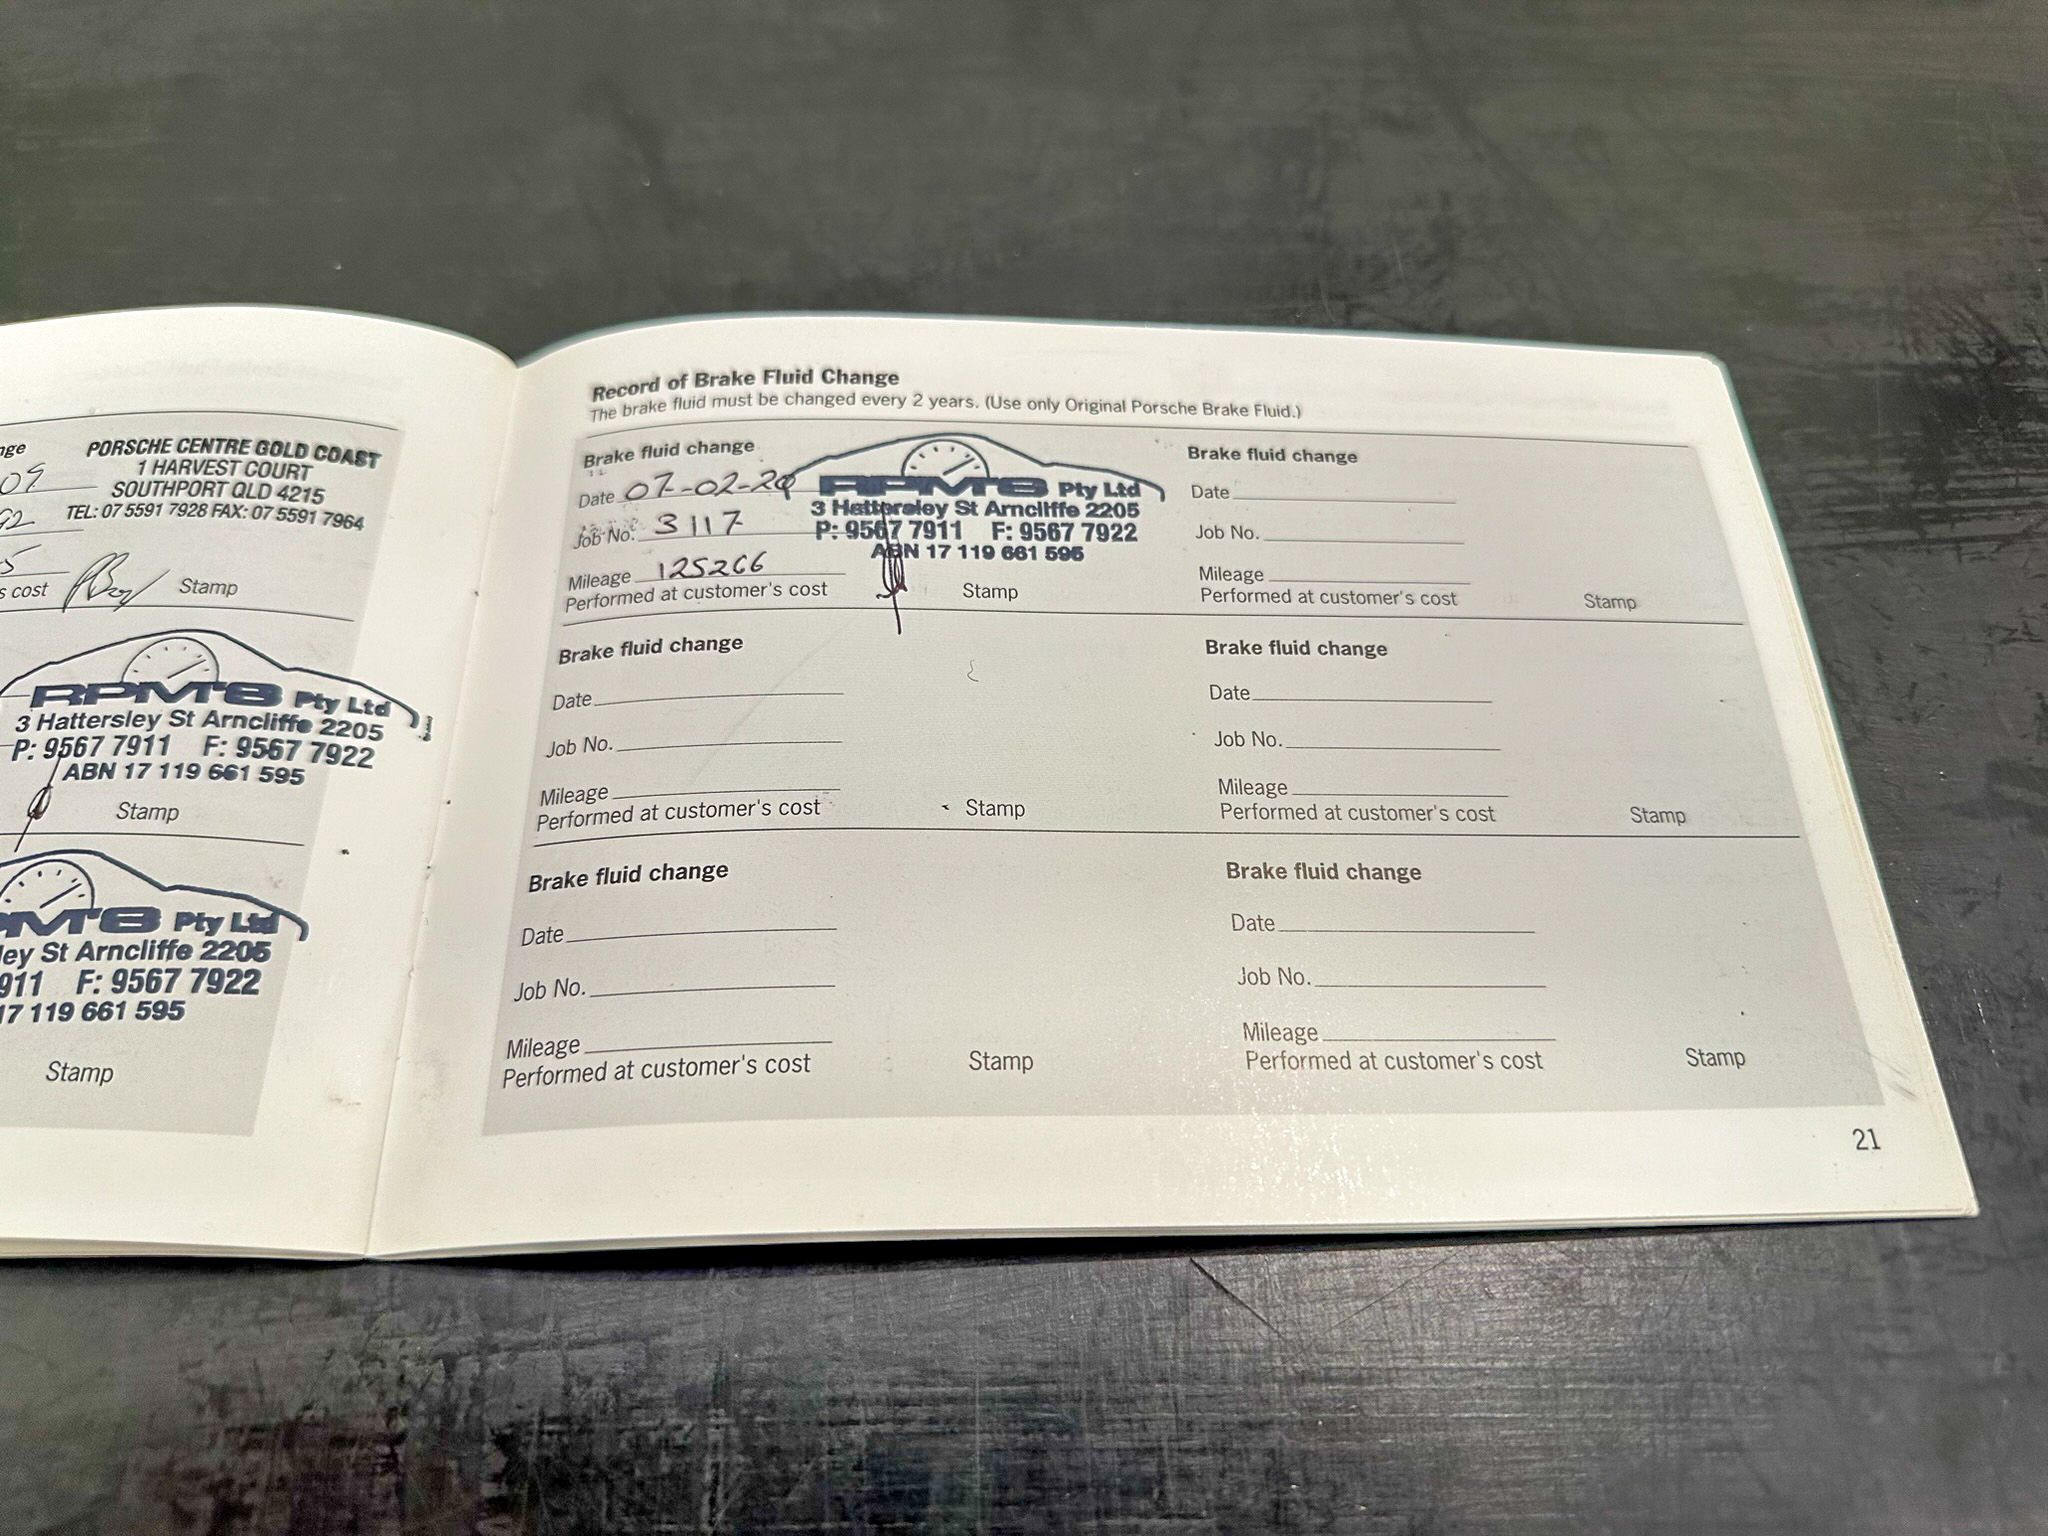 nge
09
92
5
s cost
PORSCHE CENTRE GOLD COAST
1 HARVEST COURT
SOUTHPORT QLD 4215
TEL: 07 5591 7928 FAX: 07 5591 7964
Stamp
RPM'8 Pty Ltd
3 Hattersley St Arncliffe 2205
P: 9567 7911 F: 9567 7922
ABN 17 119 661 595
Stamp
PM'8 Pty Ltd
ley St Arncliffe 2205
911 F: 9567 7922
17 119 661 595
Stamp
Record of Brake Fluid Change
The brake fluid must be changed every 2 years. (Use only Original Porsche Brake Fluid.)
Brake fluid change
Date 07-02-20
Job No. 3117
Mileage 125266
Performed at customer's cost
RPM'8 Pty Ltd
3 Hattersley St Arncliffe 2205
P: 9567 7911 F: 9567 7922
ABN 17 119 661 595
Stamp
Brake fluid change
Date
Job No.
Mileage
Performed at customer's cost Stamp
Brake fluid change
Date
Job No.
Mileage
Performed at customer's cost Stamp
Brake fluid change
Date
Job No.
Mileage
Performed at customer's cost Stamp
Brake fluid change
Date
Job No.
Mileage
Performed at customer's cost Stamp
Brake fluid change
Date
Job No.
Mileage
Performed at customer's cost Stamp
21